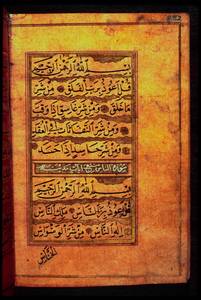 بسم الله الرحمن الرحيم
قل اعوذ برب الفلق من شر
ما خلق ومن شر غاسق اذا وقب
ومن شر النفثت في العقد
ومن شر حاسد اذا حسد
سورة الناس
بسم الله الرحمن الرحيم
قل اعوذ برب الناس ملك الناس
اله الناس من شر الوسواس
الخناس